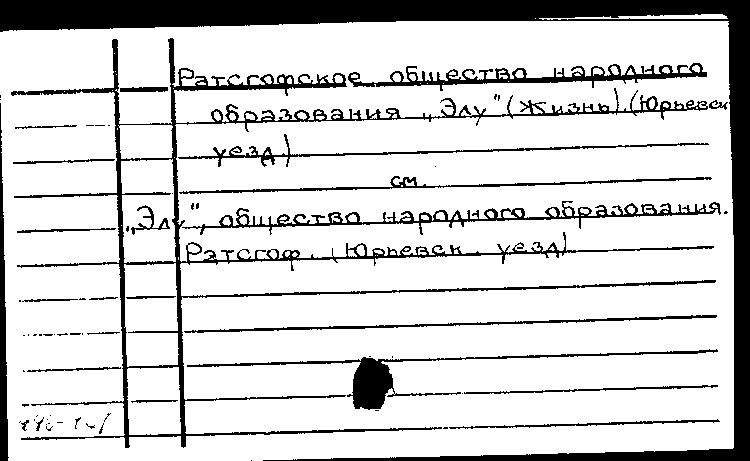 Ратсгофское общество народного
образования „Элу" (Жизнь). (Юрьевск
уезд)
см.
„Элу", общество народного образования.
Ратсгоф. (Юрьевск. уезд)